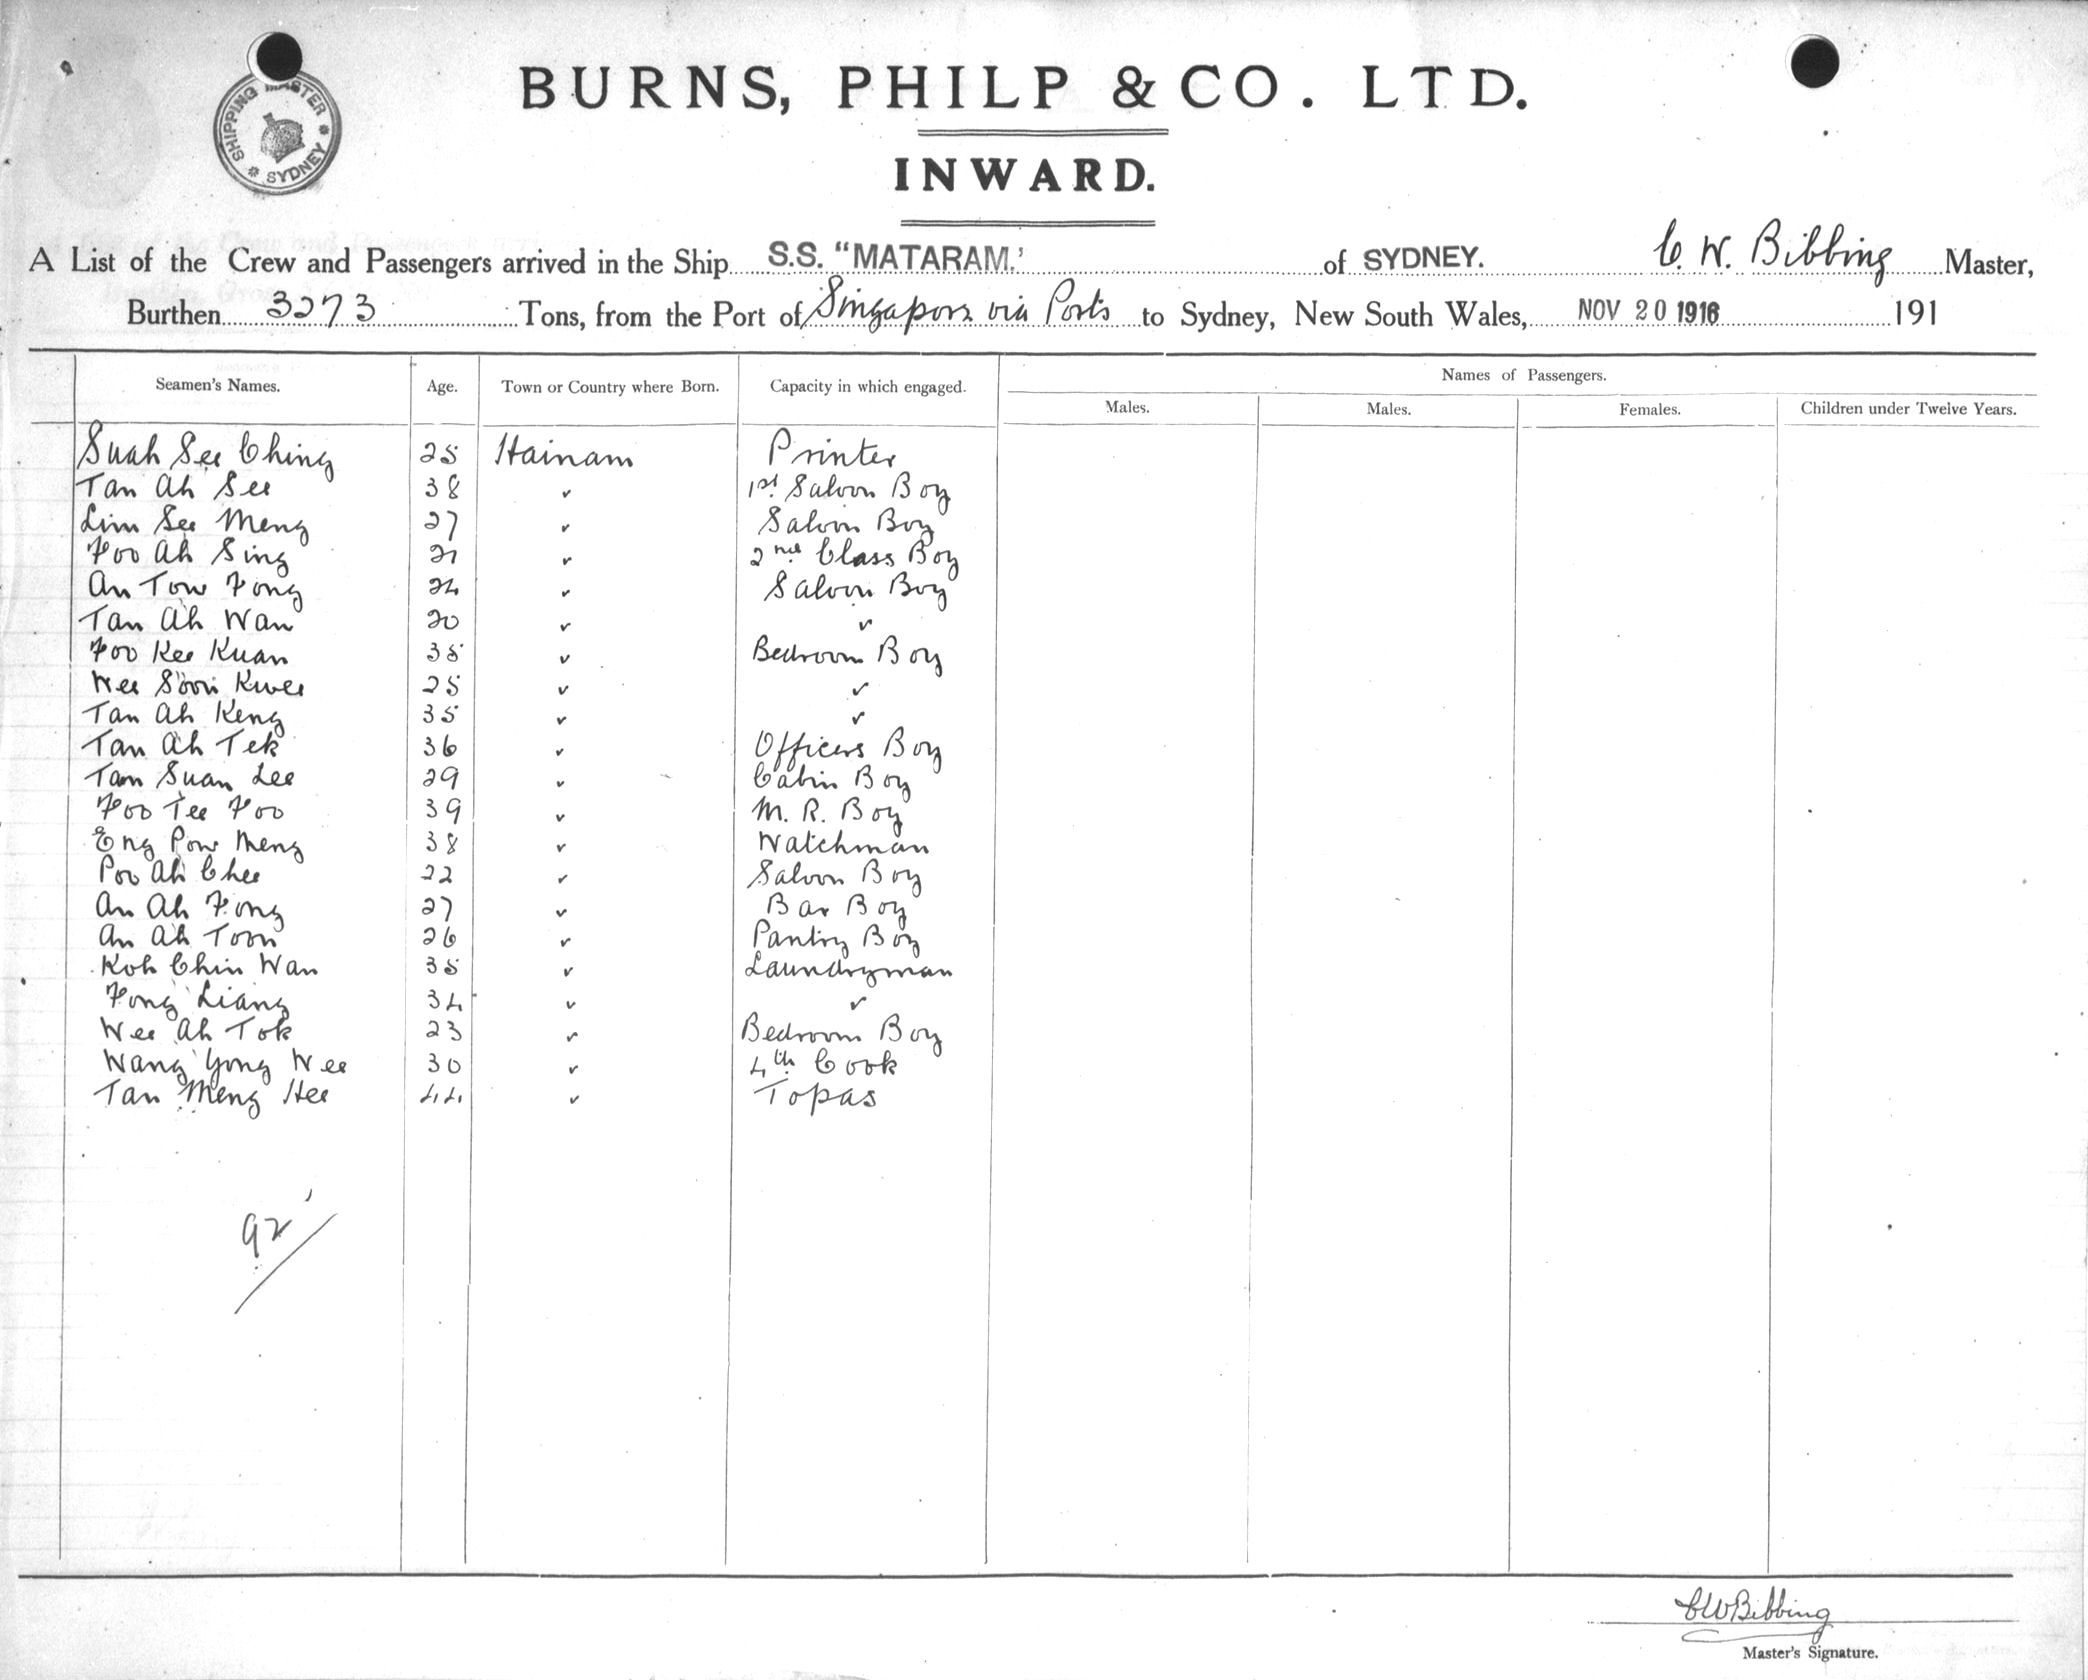 SHIPPING MASTER
* SYDNEY *
BURNS, PHILP & CO. LTD.
INWARD.
A List of the Crew and Passengers arrived in the Ship S.S. "MATARAM." of SYDNEY. C. W. Bibbing Master,
Burthen 3273 Tons, from the Port of Singapore via Ports to Sydney, New South Wales, NOV 20 1916 191
Seamen's Names. Age. Town or Country where Born. Capacity in which engaged. Names of Passengers.
Males. Males. Females. Children under Twelve Years.
Suah See Ching 25 Hainam Printer
Tan Ah See 38 " 1st Saloon Boy
Lim See Meng 27 " Saloon Boy
Foo Ah Sing 21 " 2nd Class Boy
An Tow Fong 24 " Saloon Boy
Tan Ah Wan 20 " "
Foo Kee Kuan 35 " Bedroom Boy
Wee Soon Kwee 25 " "
Tan Ah Keng 35 " "
Tan Ah Tek 36 " Officers Boy
Tan Suan Lee 29 " Cabin Boy
Foo Tee Foo 39 " M. R. Boy
Eng Pow Meng 38 " Watchman
Poo Ah Chee 22 " Saloon Boy
An Ah Fong 27 " Bar Boy
An Ah Toon 26 " Pantry Boy
Koh Chin Wan 35 " Laundryman
Fong Liang 34 " "
Wee Ah Tok 23 " Bedroom Boy
Wang Yong Wee 30 " 4th Cook
Tan Meng Hee 44 " Topas
92
CWBibbing
Master's Signature.